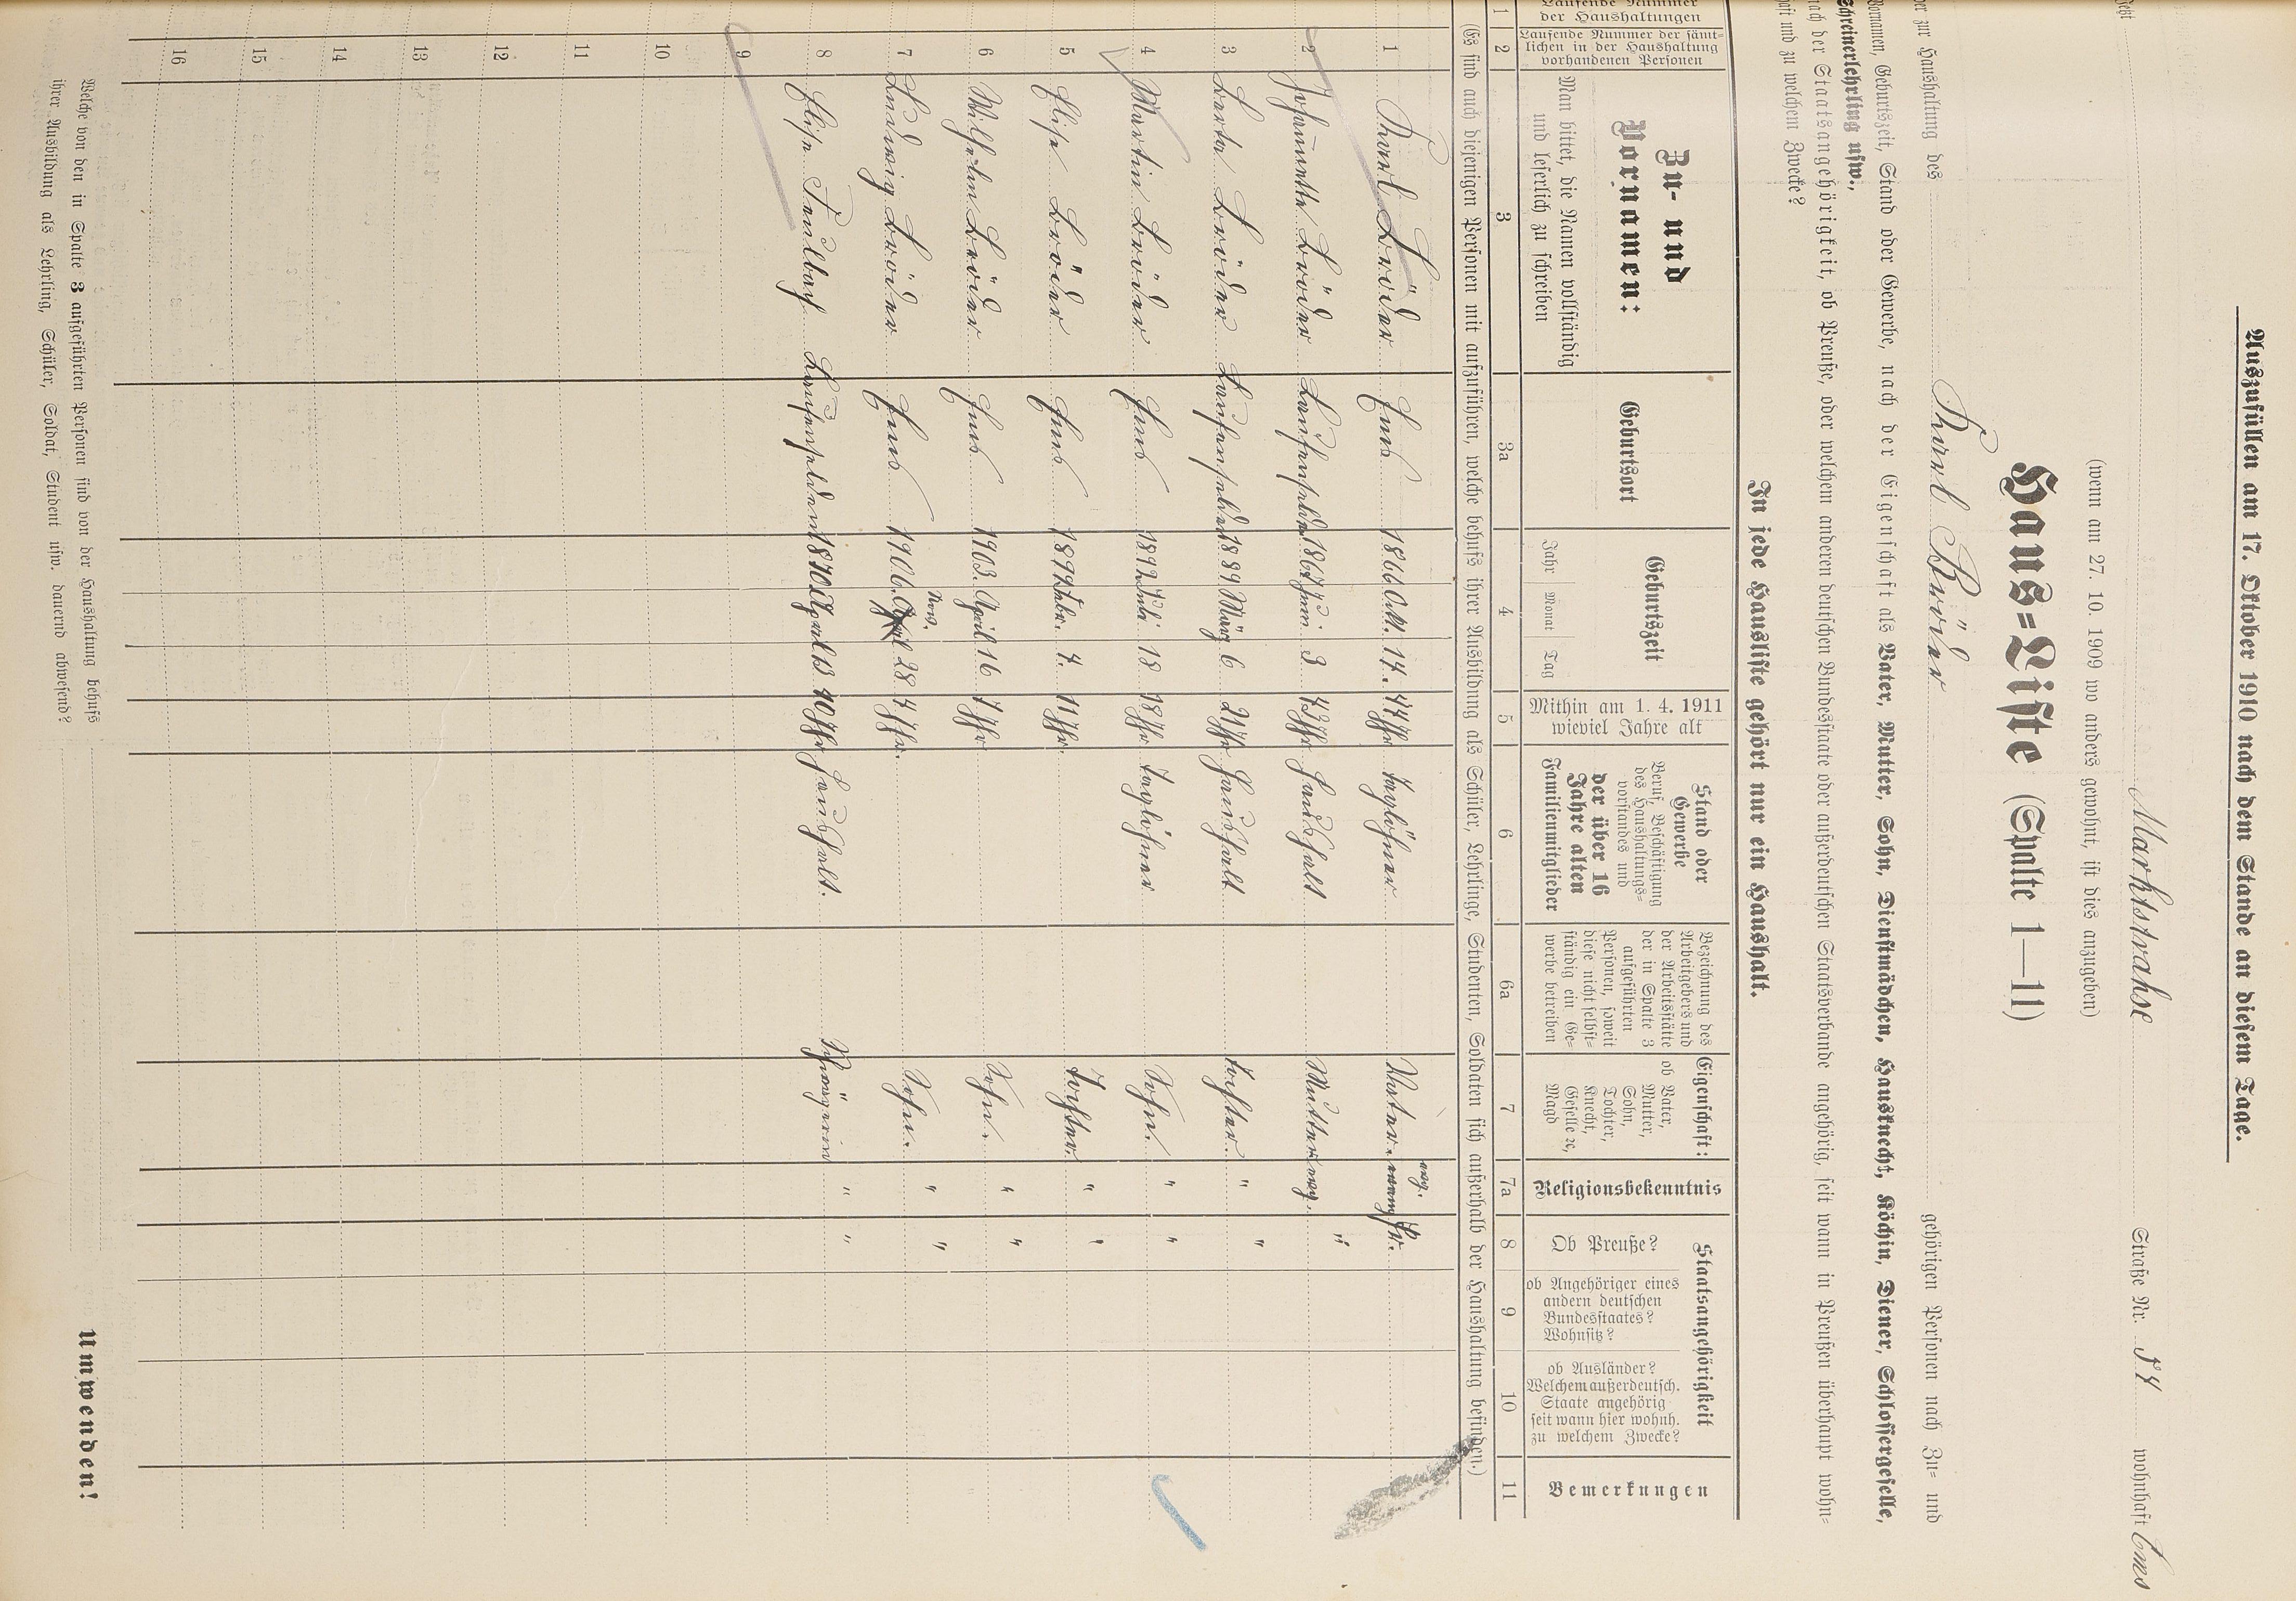 Auszufüllen am 17. Oktober 1910 nach dem Stande an diesem Tage.
Marktstrahse Straße Nr. 54 wohnhaft Ems
(wenn am 27. 10. 1909 wo anders gewohnt, ist dies anzugeben)
Haus=Liste (Spalte 1—11)
der zur Haushaltung des Karl Bröder gehörigen Personen nach Zu= und
Vornamen, Geburtszeit, Stand oder Gewerbe, nach der Eigenschaft als Vater, Mutter, Sohn, Dienstmädchen, Hausknecht, Köchin, Diener, Schlossergeselle,
Schreinerlehrling usw.,
nach der Staatsangehörigkeit, ob Preuße, oder welchem anderen deutschen Bundesstaate oder außerdeutschen Staatsverbande angehörig, seit wann in Preußen überhaupt wohn=
haft und zu welchem Zwecke?
In jede Hausliste gehört nur ein Haushalt.
Laufende Nummer der Haushaltungen
Laufende Nummer der sämt=lichen in der Haushaltung vorhandenen Personen
Zu- und Vornamen:
Man bittet, die Namen vollständig und leserlich zu schreiben
Geburtsort
Geburtszeit
Jahr Monat Tag
Mithin am 1. 4. 1911 wieviel Jahre alt
Stand oder Gewerbe
Beruf, Beschäftigung des Haushaltungs=vorstandes und der über 16 Jahre alten Familienmitglieder
Bezeichnung des Arbeitgebers und der Arbeitsstätte der in Spalte 3 aufgeführten Personen, soweit diese nicht selbst=ständig ein Ge=werbe betreiben
Eigenschaft:
ob Vater, Mutter, Sohn, Tochter, Knecht, Geselle ꝛc, Magd
Religionsbekenntnis
Staatsangehörigkeit
Ob Preuße?
ob Angehöriger eines andern deutschen Bundesstaates? Wohnsitz?
ob Ausländer? Welchem außerdeutsch. Staate angehörig seit wann hier wohnh. zu welchem Zwecke?
Bemerkungen
1 2 3 3a 4 5 6 6a 7 7a 8 9 10 11
(Es sind auch diejenigen Personen mit aufzuführen, welche behufs ihrer Ausbildung als Schüler, Lehrlinge, Studenten, Soldaten sich außerhalb der Haushaltung befinden.)
1 Karl Bröder Ems 1866 Okt. 17. 44 Jhr Taglöhner Vater. evg. Pr.
2 Johannette Bröder Laufenselden 1867 Juni 3 43 Jhr Haushalt Mutter evg. "
3 Berta Bröder Laufenselden 1889 März 6 21 Jhr Haushalt Tochter. " "
4 Martin Bröder Ems 1892 Juli 18 18 Jhr Taglöhner Sohn. " "
5 Elise Bröder Ems 1899 Febr. 7. 11 Jhr. Tochter. " "
6 Wilhelm Bröder Ems 1903. April 16 7 Jhr Sohn. " "
7 Ludwig Bröder Ems 1906. Nov. 28 4 Jhr. Sohn. " "
8 Elise Faulbach Laufenselden 1870 13 40 Jhr Haushalt. Schwägerin " "
9
10
11
12
13
14
15
16
Welche von den in Spalte 3 aufgeführten Personen sind von der Haushaltung behufs
ihrer Ausbildung als Lehrling, Schüler, Soldat, Student usw. dauernd abwesend?
Umwenden!